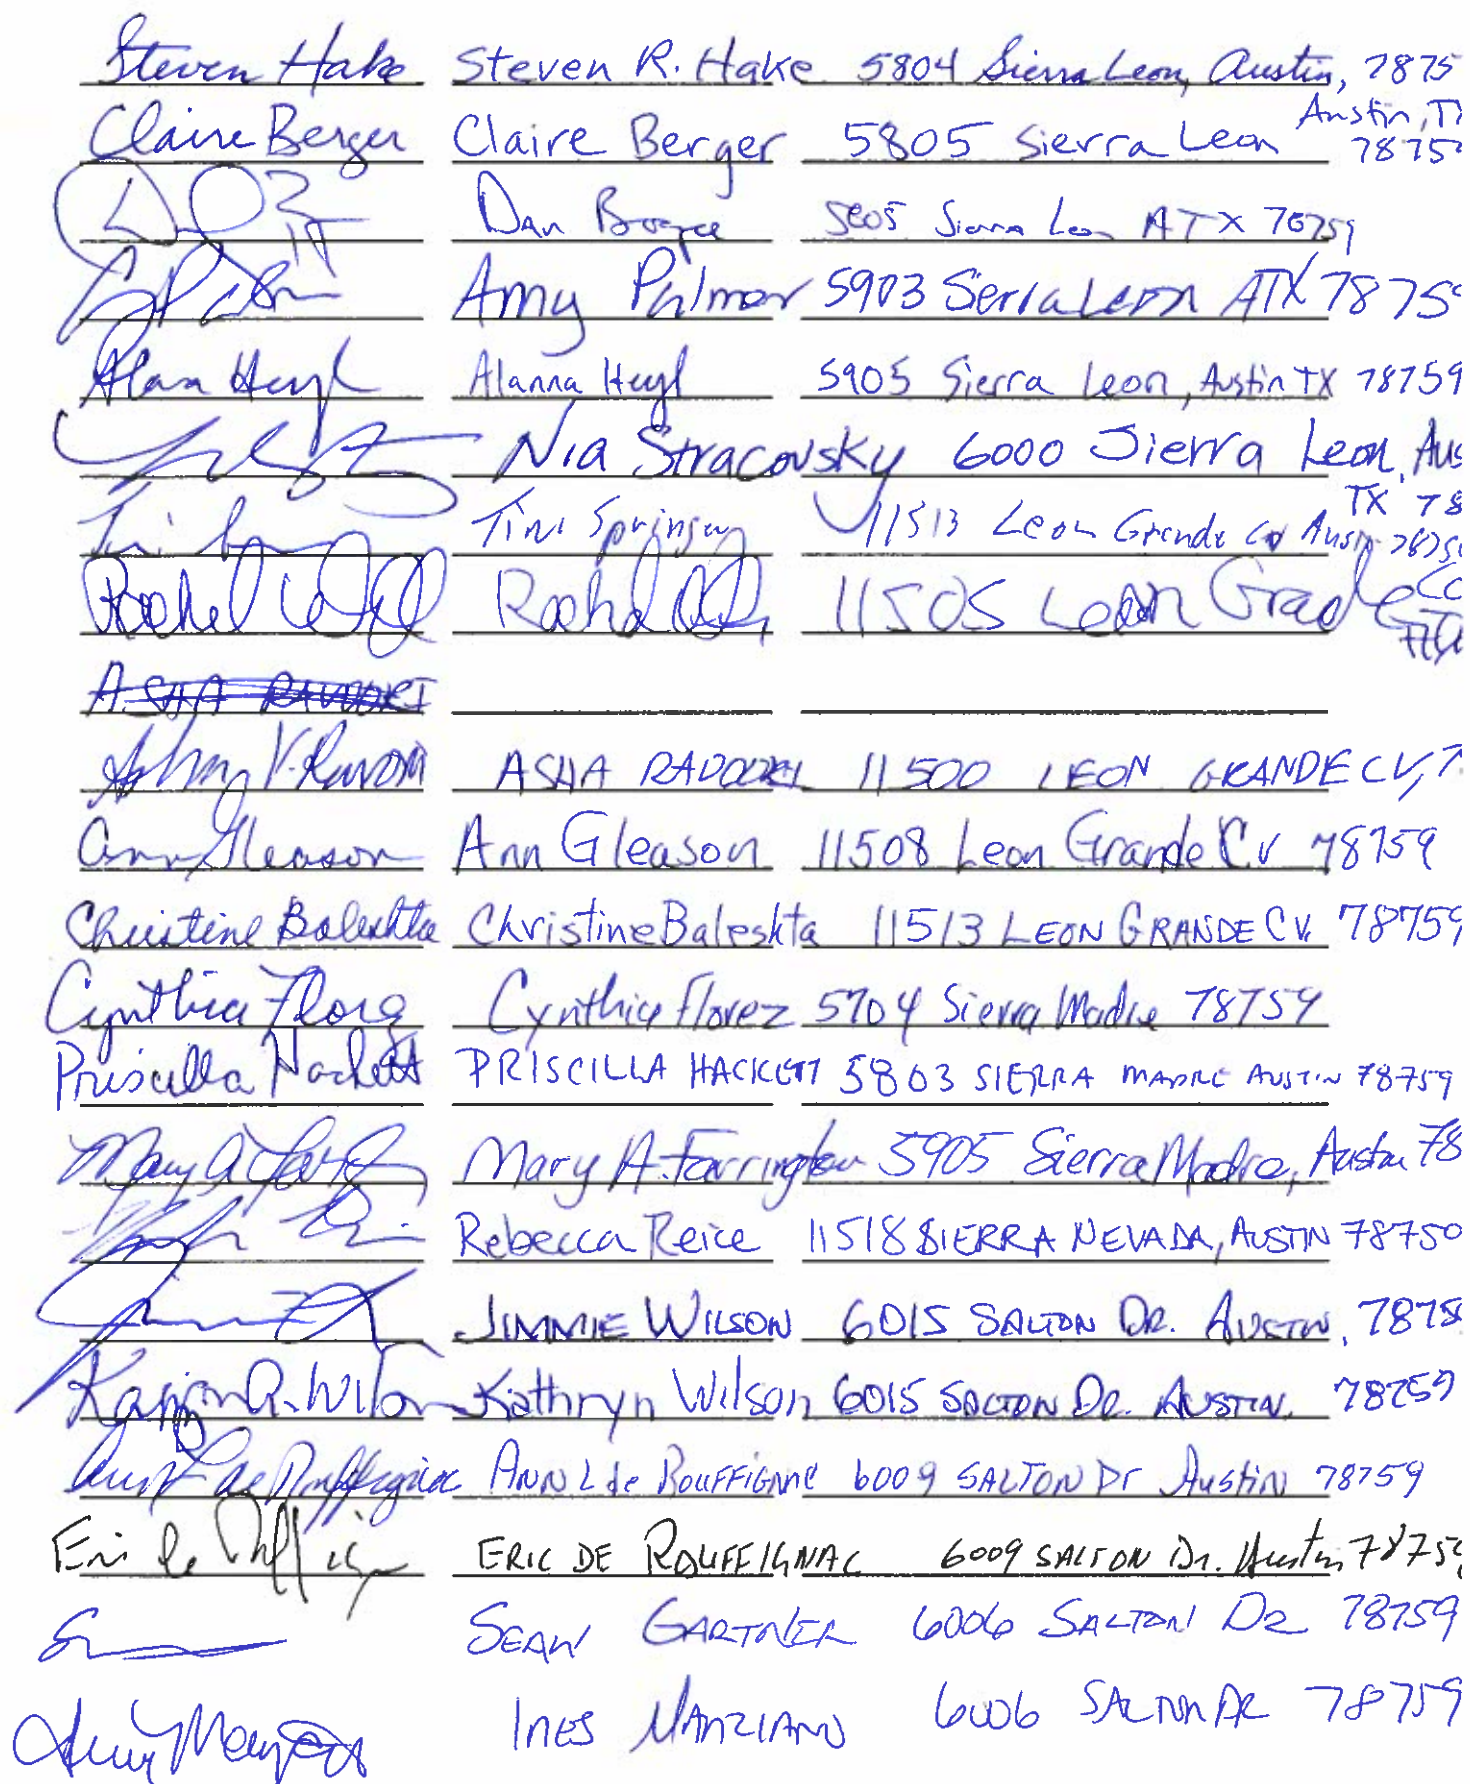 Steven Hake Steven R. Hake 5804 Sierra Leon, Austin, 7875
Claire Berger Claire Berger 5805 Sierra Leon Austin, TX 78759
Dan 5805 Sierra Leon ATX 78759
Amy Palmer 5903 Serra Leon ATX 78759
Alanna Heyl 5905 Sierra Leon, Austin TX 78759
Nia Stracovsky 6000 Sierra Leon, Aus TX 78
Tini 11513 Leon Grande Cv Austin 78759
Rachel Rachel 11505 Leon Grade Co
ASHA RAVOORI
ASHA RAVOORI 11500 LEON GRANDE CV, 7
Ann Gleason Ann Gleason 11508 Leon Grande Cv 78759
Christine Baleshta Christine Baleshta 11513 LEON GRANDE CV. 78759
Cynthia Florez Cynthia Florez 5704 Sierra Madre 78759
Priscilla Hackett PRISCILLA HACKETT 5803 SIERRA MADRE AUSTIN 78759
Mary A Mary A. Farrington 5905 Sierra Madre, Austin 78
Rebecca Reice 11518 SIERRA NEVADA, AUSTIN 78750
JIMMIE WILSON 6015 SALTON DR. AUSTIN, 7875
Kathryn Wilson 6015 SALTON DR. AUSTIN. 78759
Ann L de Rouffignac ANN L de ROUFFIGNAC 6009 SALTON Dr Austin 78759
Eric de ERIC DE ROUFFIGNAC 6009 SALTON Dr. Austin 78759
SEAN GARTNER 6006 SALTON DR 78759
INES MANZIANO 6006 SALTON DR 78759